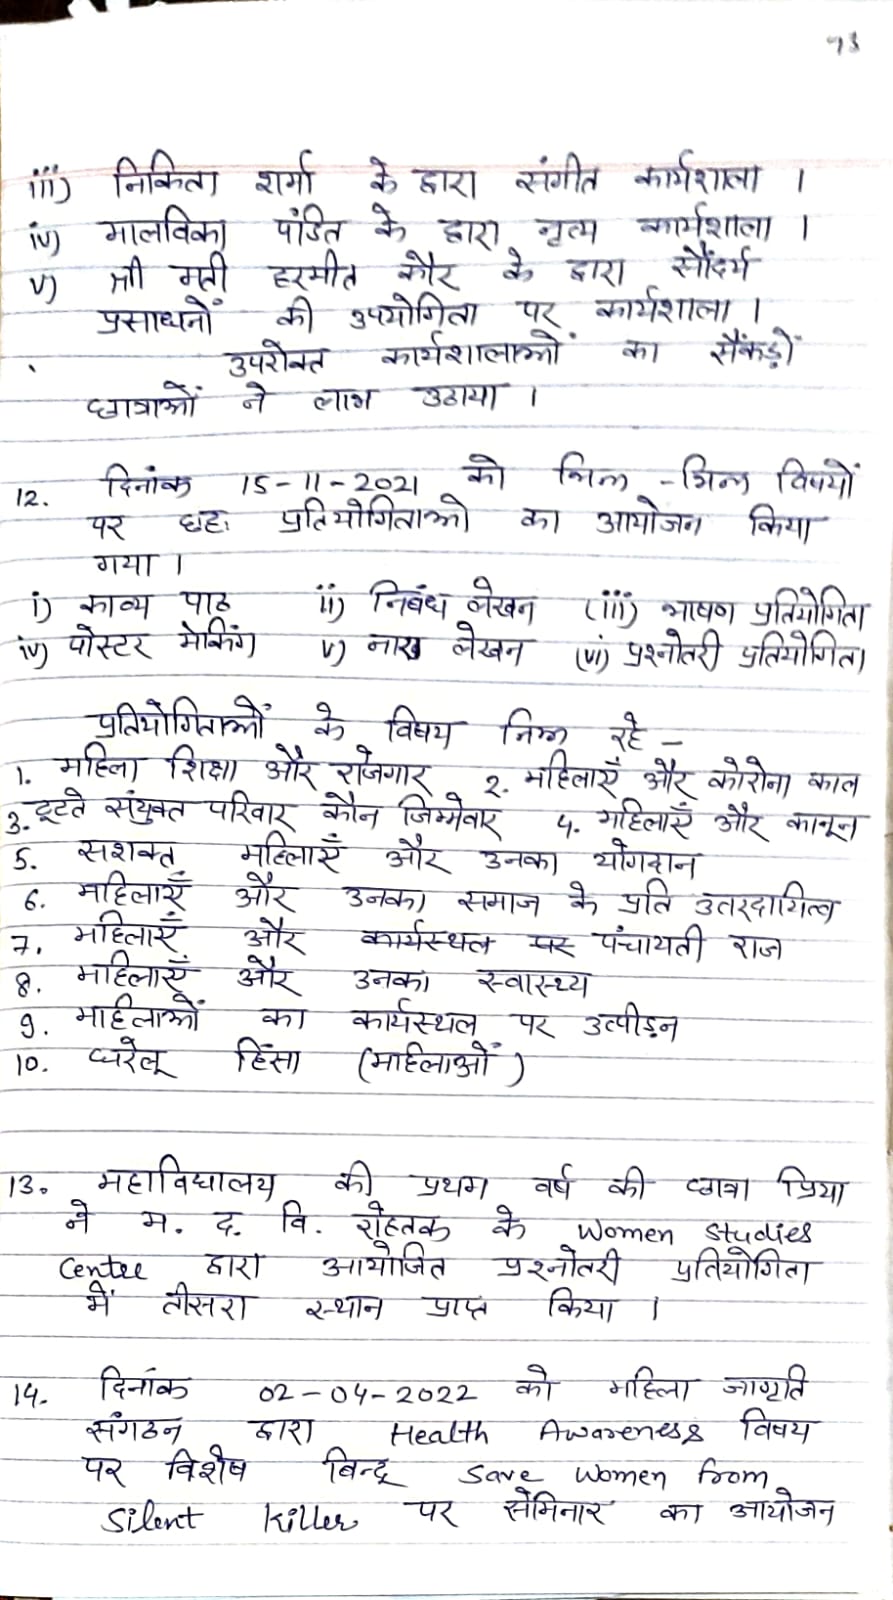 93
iii) निकिता शर्मा के द्वारा संगीत कार्यशाला ।
iv) मालविका पंडित के द्वारा नृत्य कार्यशाला ।
v) श्री मती हरमीत कौर के द्वारा सौंदर्य
प्रसाधनों की उपयोगिता पर कार्यशाला ।
उपरोक्त कार्यशालाओं का सैंकड़ों
छात्राओं ने लाभ उठाया ।
12. दिनांक 15-11-2021 को भिन्न -भिन्न विषयों
पर छह: प्रतियोगिताओ का आयोजन किया
गया ।
i) काव्य पाठ ii) निबंध लेखन (iii) भाषण प्रतियोगिता
iv) पोस्टर मेकिंग v) नारा लेखन (vi) प्रश्नोतरी प्रतियोगिता
प्रतियोगिताओं के विषय निम्न रहे –
1. महिला शिक्षा और रोजगार 2. महिलाएँ और कोरोना काल
3. टूटते संयुक्त परिवार कौन जिम्मेवार 4. महिलाएँ और कानून
5. सशक्त महिलाएँ और उनका योगदान
6. महिलाएँ और उनका समाज के प्रति उतरदायित्व
7. महिलाएँ और कार्यस्थल पर पंचायती राज
8. महिलाएँ और उनका स्वास्थ्य
9. माहिलाओं का कार्यस्थल पर उत्पीड़न
10. घरेलू हिंसा (माहिलाओं)
13. महाविद्यालय की प्रथम वर्ष की छात्रा प्रिया
ने म. द. वि. रोहतक के Women Studies
Centre द्वारा आयोजित प्रश्नोतरी प्रतियोगिता
में तीसरा स्थान प्राप्त किया ।
14. दिनांक 02-04-2022 को महिला जागृति
संगठन द्वारा Health Awareness विषय
पर विशेष बिन्दू Save Women from
Silent Killer पर सेमिनार का आयोजन